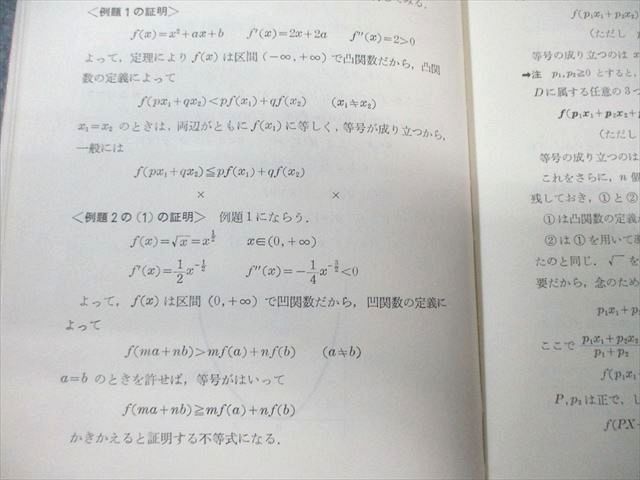 <例題1の証明>
f(x)=x²+ax+b　f′(x)=2x+2a　f″(x)=2>0
よって，定理により f(x) は区間 (−∞, +∞) で凸関数だから，凸関
数の定義によって
f(px₁+qx₂)<pf(x₁)+qf(x₂)　(x₁≠x₂)
x₁=x₂ のときは，両辺がともに f(x₁) に等しく，等号が成り立つから，
一般には
f(px₁+qx₂)≦pf(x₁)+qf(x₂)
×　×
<例題2の(1)の証明>　例題1にならう．
f(x)=√x=x^{1/2}　x∈(0, +∞)
f′(x)=1/2 x^{-1/2}　f″(x)=−1/4 x^{-3/2}<0
よって，f(x) は区間 (0, +∞) で凹関数だから，凹関数の定義に
よって
f(ma+nb)>mf(a)+nf(b)　(a≠b)
a=b のときを許せば，等号がはいって
f(ma+nb)≧mf(a)+nf(b)
かきかえると証明する不等式になる．
f(p₁x₁+p₂
(ただし
等号の成り立つのは x
➡注　p₁, p₂≧0 とすると，
Dに属する任意の3つ
f(p₁x₁+p₂x₂+
(ただし
等号の成り立つのは
これをさらに，n 個
残しておき，①と②
①は凸関数の定義
②は①を用いて導
たのと同じ．√ を
要だから，念のため
p₁x₁+p₂
ここで (p₁x₁+p₂x₂)/(p₁+p₂)
f(p₁x₁
P, p₃は正で，し
f(PX+